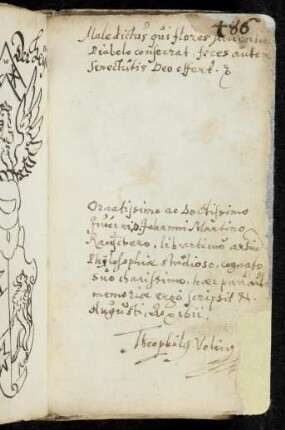 486
Maledictus qui flores juventutis
Diabolo consecrat, feces autem
Senectutis Deo offert.
Ornatissimo ac Doctissimo
Juveni D. Johanni Martino
liberalium artium
Philosophiæ studioso, cognato
suo charissimo, hæc pauca
memoriæ ergo scripsit
Augusti,
Theophilus